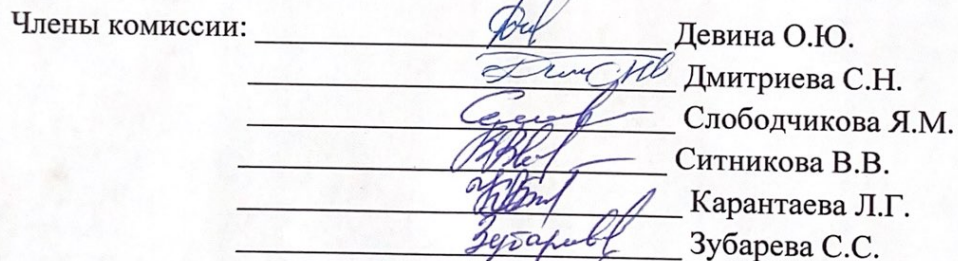 Члены комиссии: Девина О.Ю.
Дмитриева С.Н.
Слободчикова Я.М.
Ситникова В.В.
Карантаева Л.Г.
Зубарева С.С.